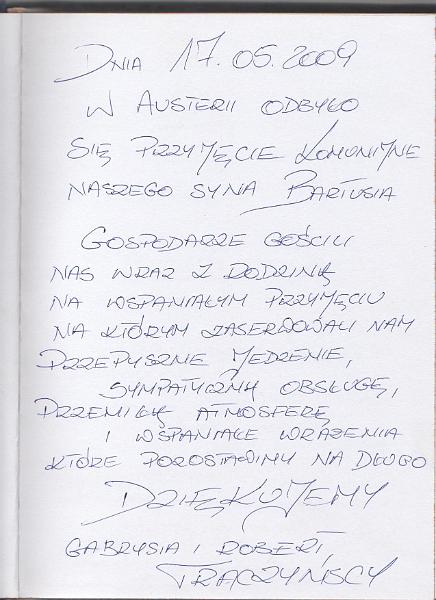 DNIA 17.05.2009
W AUSTERII ODBYŁO
SIĘ PRZYJĘCIE KOMUNIJNE
NASZEGO SYNA BARTUSIA
GOSPODARZE GOŚCILI
NAS WRAZ Z RODZINĄ
NA WSPANIAŁYM PRZYJĘCIU
NA KTÓRYM ZASERWOWALI NAM
PRZEPYSZNE JEDZENIE,
SYMPATYCZNĄ OBSŁUGĘ,
PRZEMIŁĄ ATMOSFERĘ
I WSPANIAŁE WRAŻENIA
KTÓRE POZOSTAWIMY NA DŁUGO
DZIĘKUJEMY
GABRYSIA I ROBERT,
TRACZYŃSCY